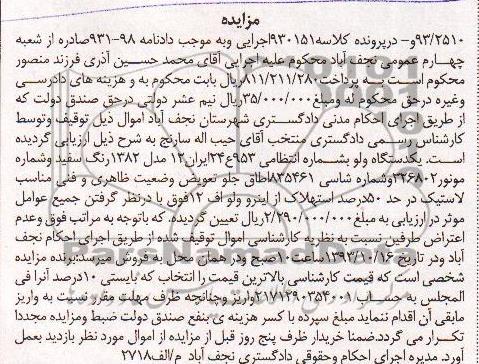 مزایده
۹۳/۲۵۱۰و- درپرونده کلاسه۹۳۰۱۵۱اجرایی وبه موجب دادنامه ۹۸-۹۳۱صادره از شعبه
چهارم عمومی نجف آباد محکوم علیه اجرایی آقای محمد حسین آذری فرزند منصور
محکوم است به پرداخت۸۱۱/۲۱۱/۲۸۰ریال بابت محکوم به و هزینه های دادرسی
وغیره درحق محکوم له ومبلغ۳۵/۰۰۰/۰۰۰ریال نیم عشر دولتی درحق صندوق دولت که
از طریق اجرای احکام مدنی دادگستری شهرستان نجف آباد اموال ذیل توقیف وتوسط
کارشناس رسمی دادگستری منتخب آقای حیب اله سارنج به شرح ذیل ارزیابی گردیده
است. یکدستگاه ولو بشماره انتظامی ۹۵۳ع۲۴ایران۱۲ مدل ۱۳۸۲رنگ سفید وشماره
موتور۳۲۶۸۰۲وشماره شاسی ۸۳۵۴۶۱اطاق جلو تعویض وضعیت ظاهری و فنی مناسب
لاستیک در حد ۵۰درصد استهلاک از اینرو ولو اف ۱۲فوق با درنظر گرفتن جمیع عوامل
موثر در ارزیابی به مبلغ ۲/۲۹۰/۰۰۰/۰۰۰ریال تعیین گردیده. که باتوجه به مراتب فوق وعدم
اعتراض طرفین نسبت به نظریه کارشناسی اموال توقیف شده از طریق اجرای احکام نجف
آباد ودر تاریخ ۱۳۹۳/۱۰/۱۶ساعت ۱۰صبح ودر همان محل به فروش میرسد:برنده مزایده
شخصی است که قیمت کارشناسی بالاترین قیمت را انتخاب که بایستی ۱۰درصد آنرا فی
المجلس به حساب ۲۱۷۱۲۹۰۳۵۴۰۰۱واریز وچنانچه ظرف مهلت مقرر نسبت به واریز
مابقی آن اقدام ننماید مبلغ سپرده با کسر هزینه ی بنفع صندوق دولت ضبط ومزایده مجددا
تکرار می گردد.ضمنا خریدار ظرف پنج روز قبل از مزایده از اموال مورد نظر بازدید بعمل
آورد. مدیره اجرای احکام وحقوقی دادگستری نجف آباد م/الف۲۷۱۸